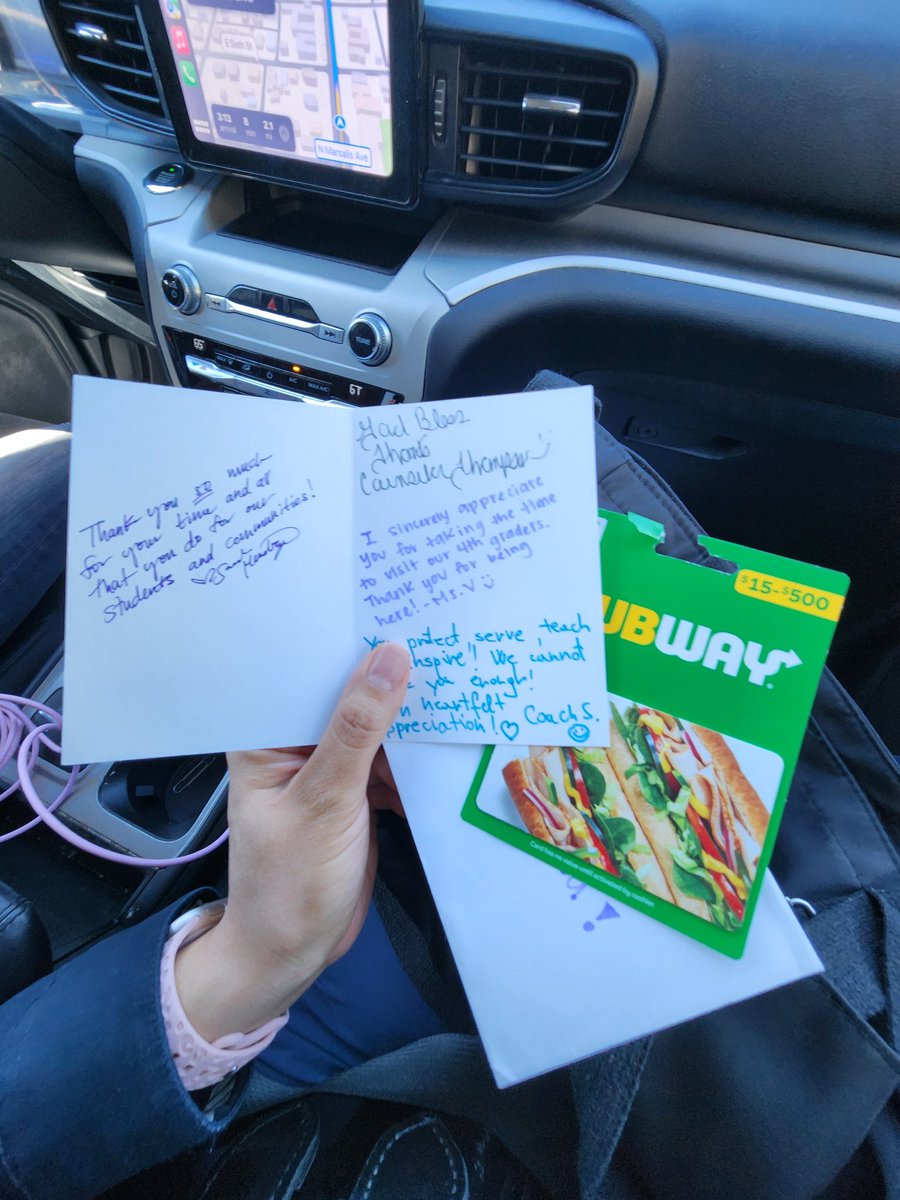 E Sixth St
3:13
8
2.1
arrival
min
mi
N Marsalis Ave
TUNE
65
A/C
MAX A/C
67
Thank you so much
for your time and all
that you do for our
students and communities!
God Bless
Thanks
Counselor Thompson
I sincerely appreciate
you for taking the time
to visit our 4th graders.
Thank you for being
here! - Ms. V
protect, serve, teach
inspire! We cannot
you enough!
heartfelt
appreciation! Coach S.
$15-$500
SUBWAY
Card has no value until activated by cashier.